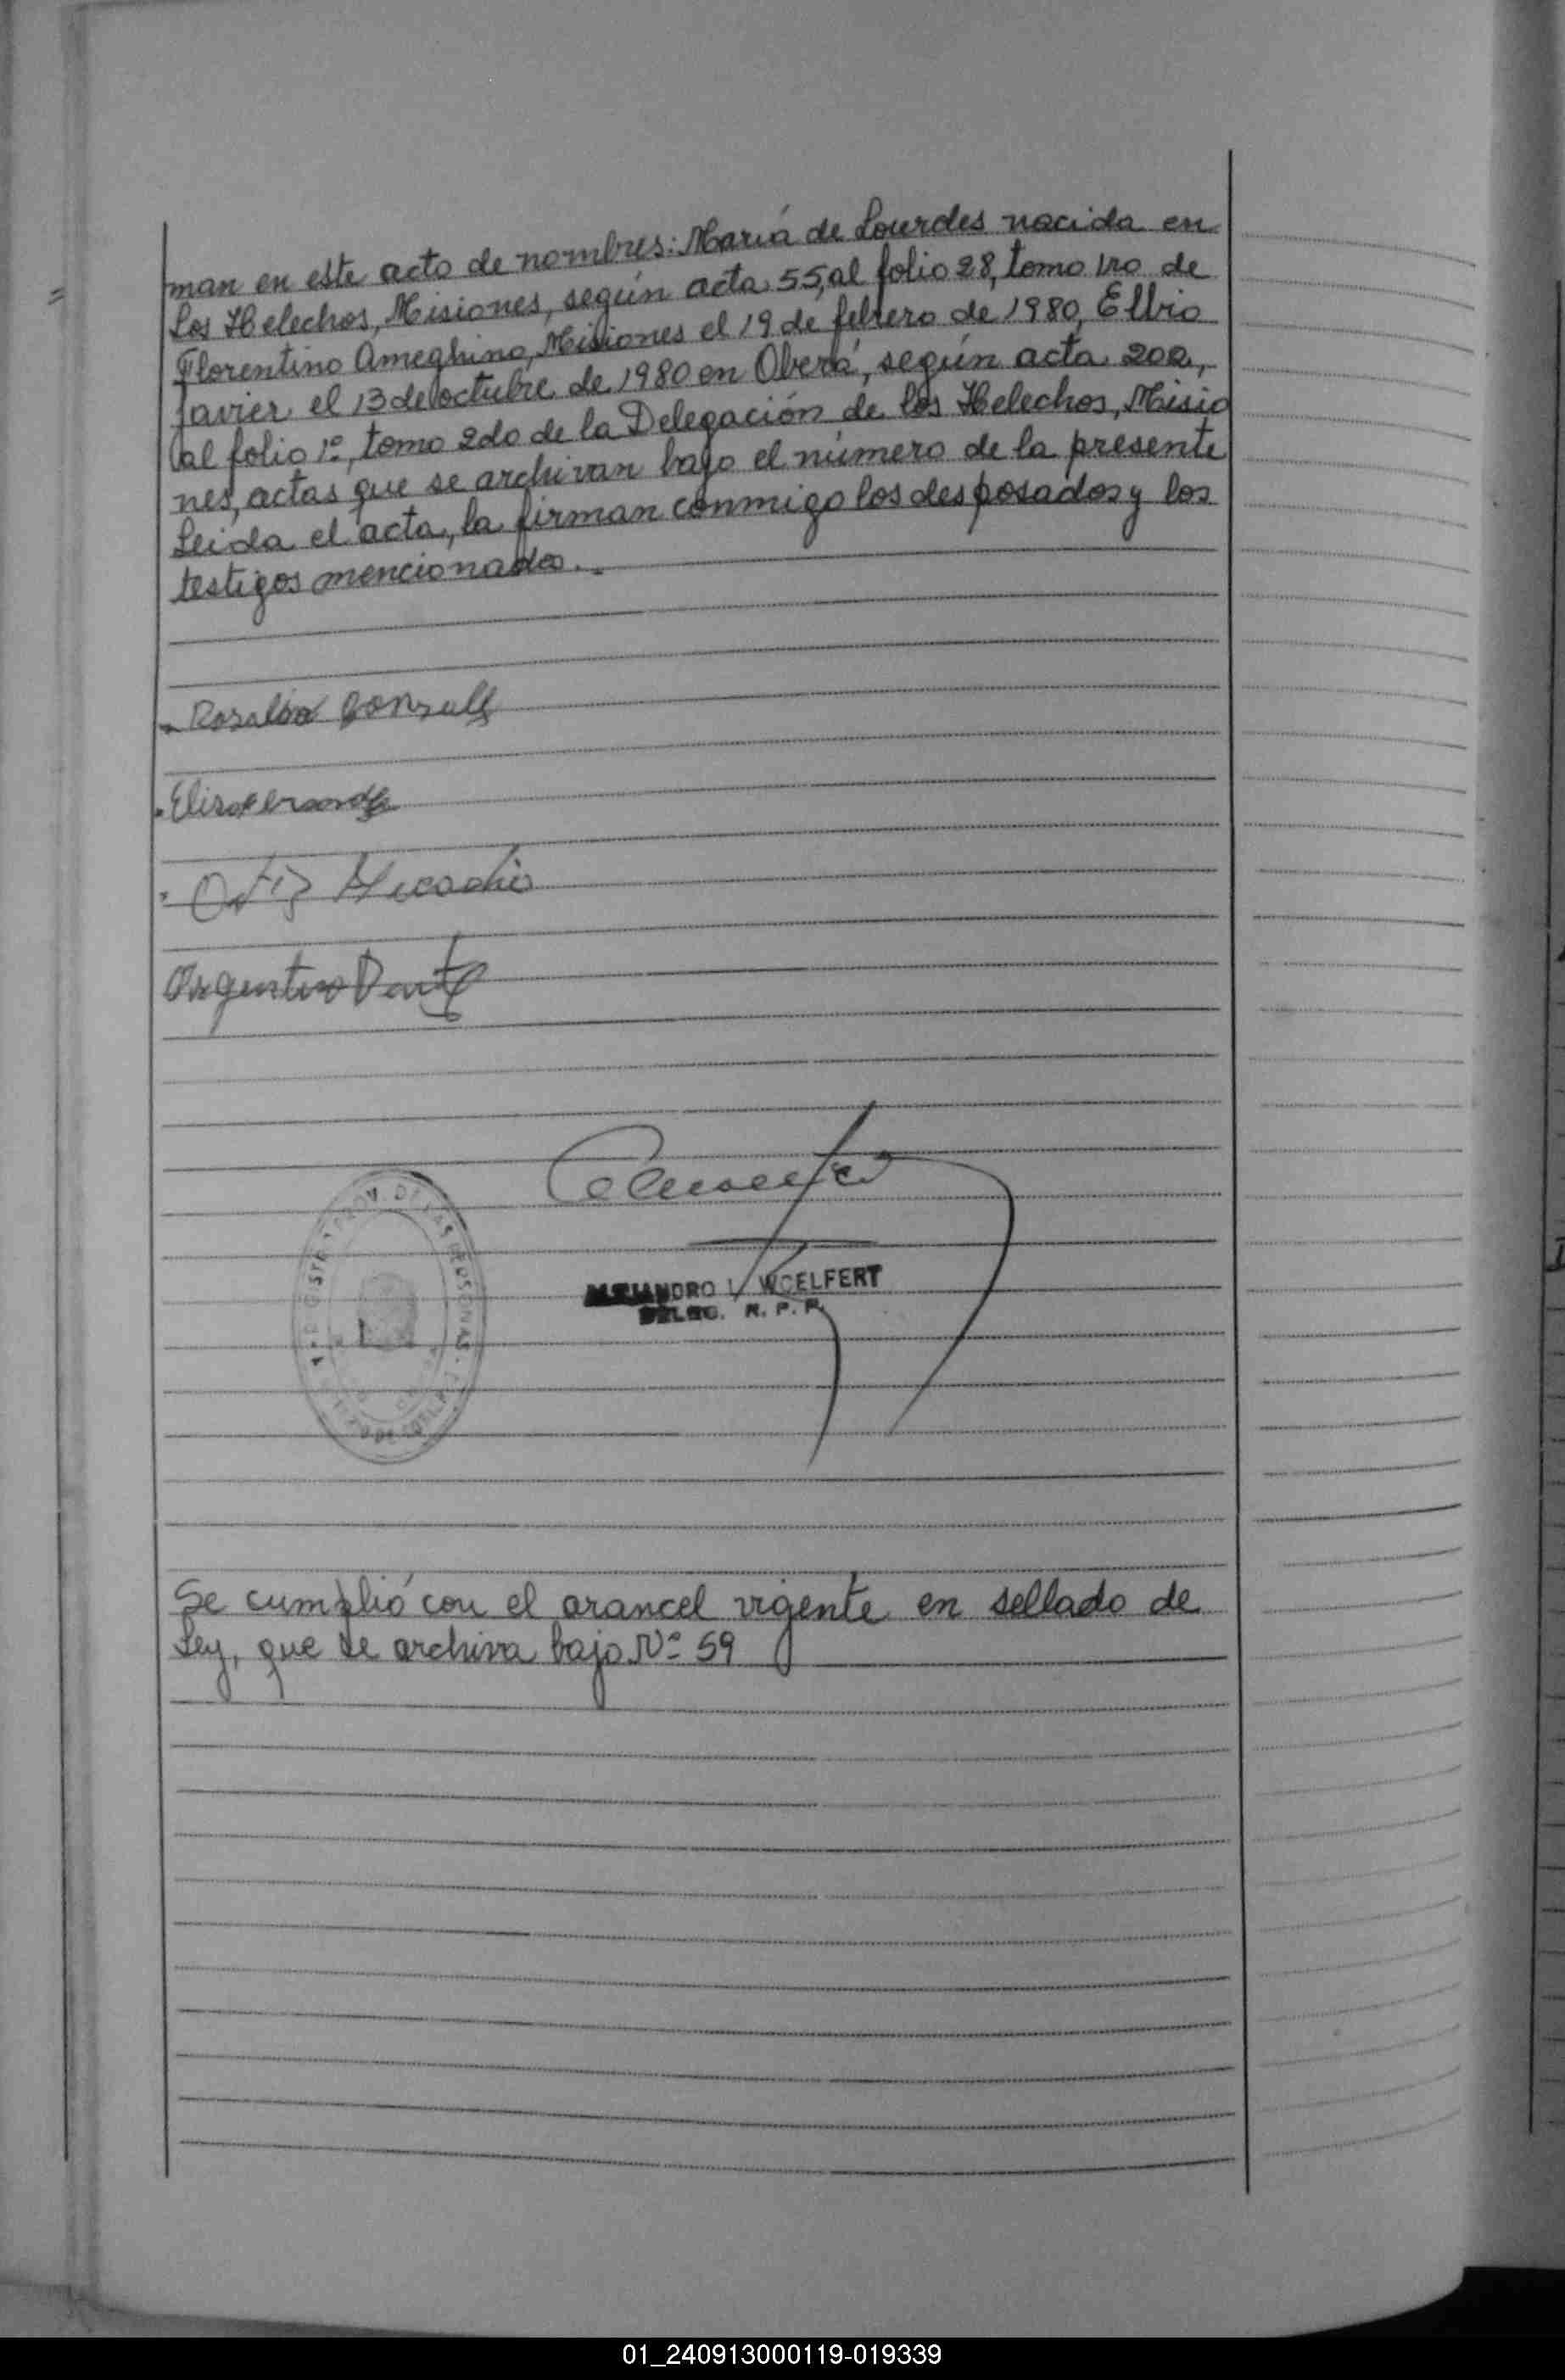 man en este acto de nombres: María de Lourdes nacida en
Los Helechos, Misiones, según acta 55, al folio 28, tomo 1ro de
Florentino Ameghino, Misiones el 19 de febrero de 1980, Elbio
Javier el 13 de octubre de 1980 en Oberá, según acta 202,
al folio 1º, tomo 2do de la Delegación de los Helechos, Misio
nes, actas que se archivan bajo el número de la presente
Leida el acta, la firman conmigo los desposados y los
testigos mencionados.
Ortiz
Argentino
ALEJANDRO WOELFERT
DELEG. R. P. P.
Se cumplió con el arancel vigente en sellado de
Ley, que se archiva bajo Nº 59
01_240913000119-019339